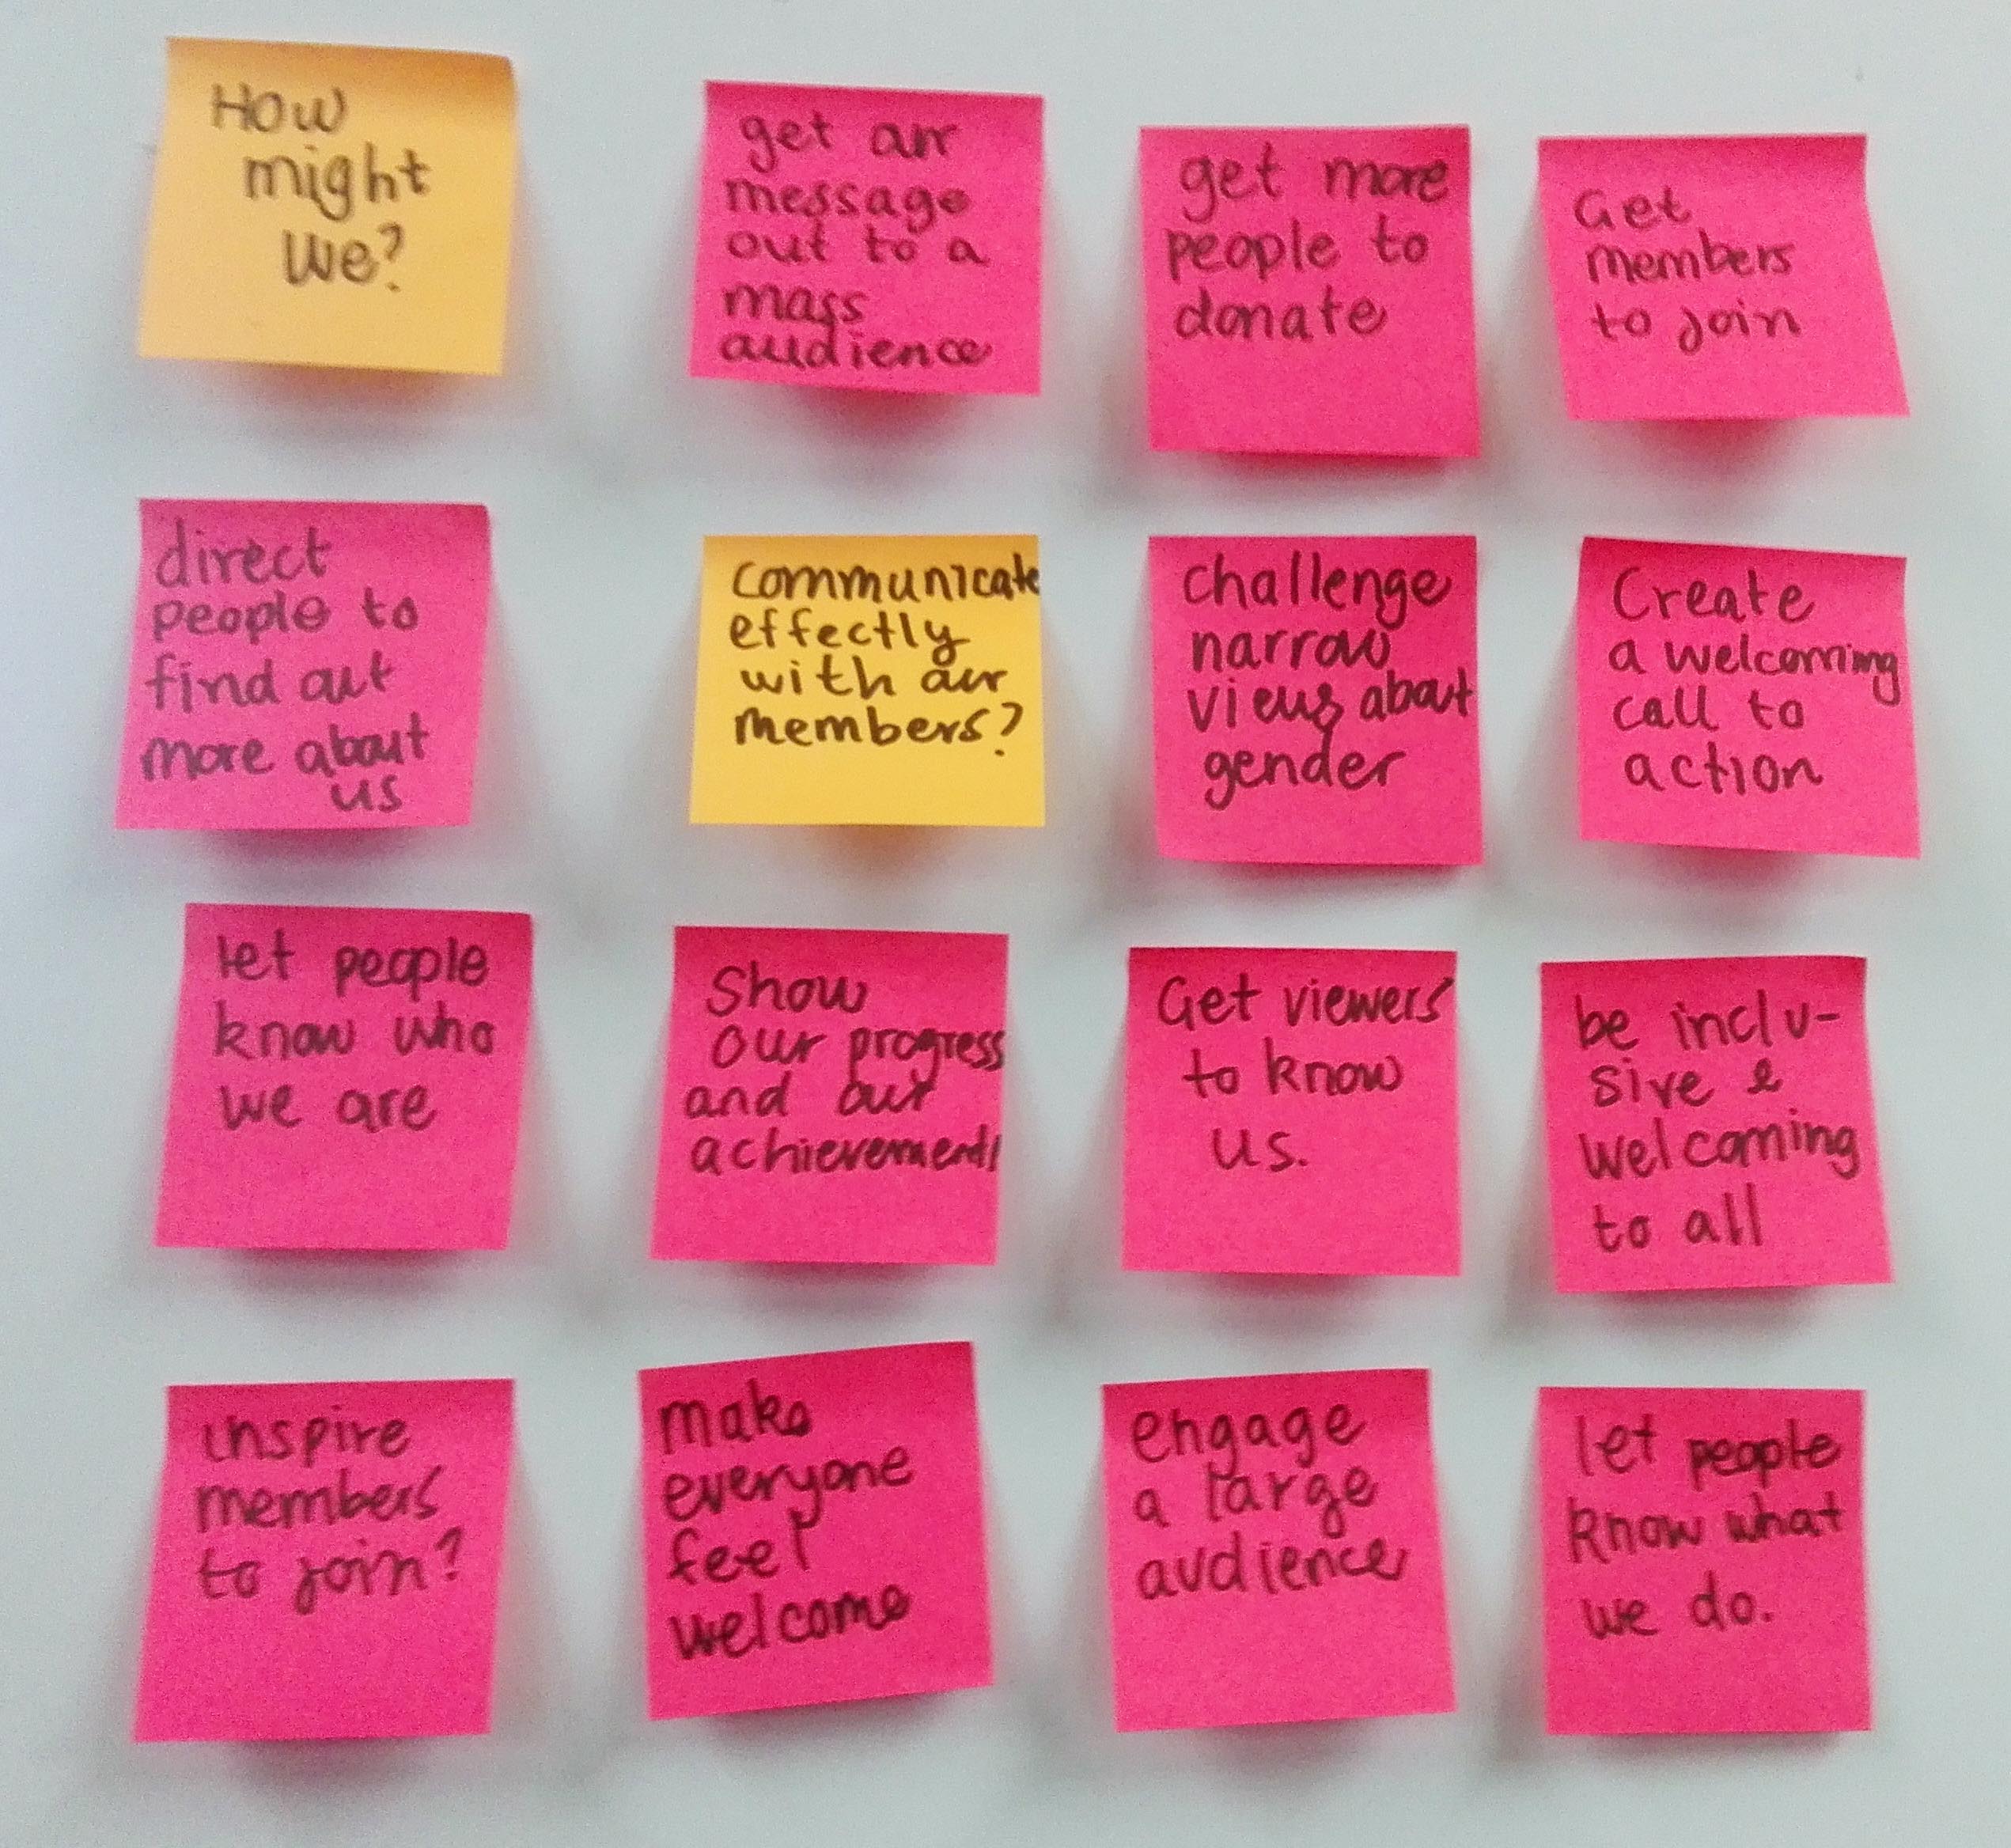 How
might
we?
get our
message
out to a
mass
audience
get more
people to
donate
Get
members
to join
direct
people to
find out
more about
us
communicate
effectly
with our
members?
challenge
narrow
views about
gender
Create
a welcoming
call to
action
let people
know who
we are
Show
our progress
and our
achievements
Get viewers
to know
us.
be inclu-
sive &
welcoming
to all
inspire
members
to join?
make
everyone
feel
welcome
engage
a large
audience
let people
know what
we do.